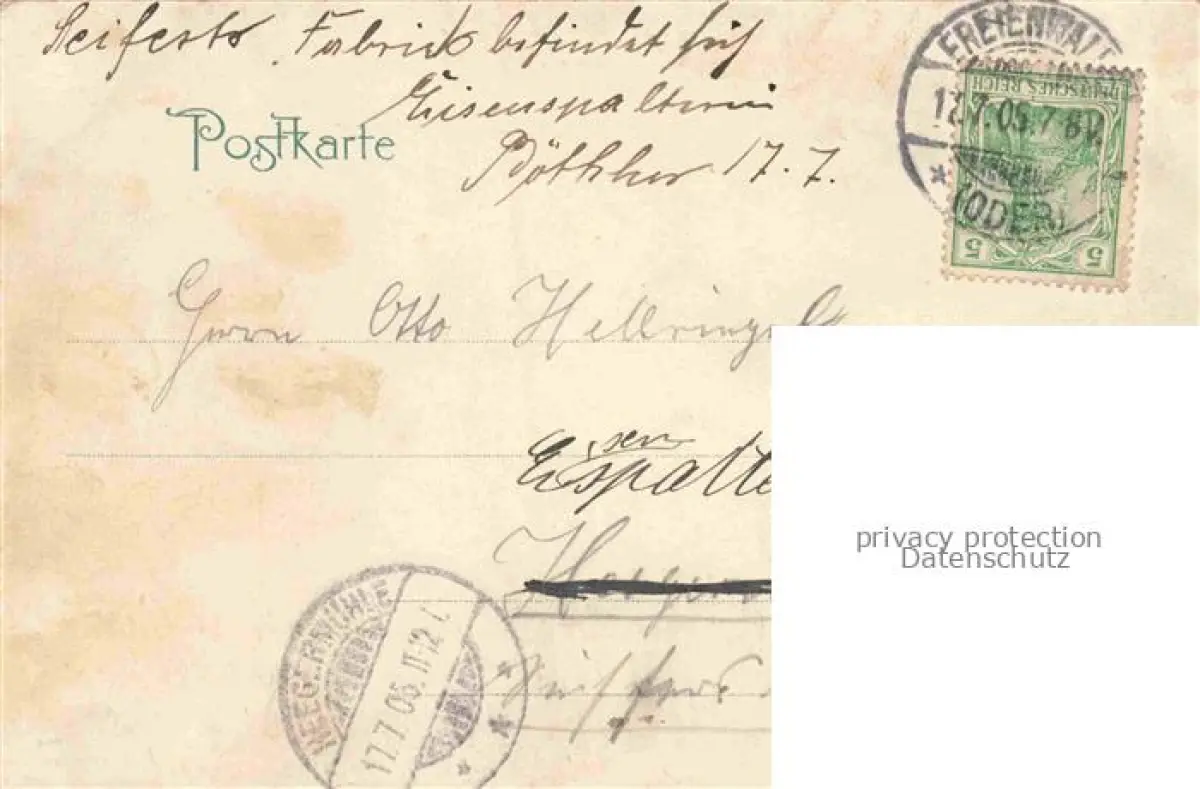 Seiferts Fabrick befindet sich
Eisenspalterei
Böttcher 17. 7.
Postkarte
FREIENWAL
17.7.05.7-8V.
(ODER)
DEUTSCHES REICH
5 5
Herrn Otto Hellring
Eisen
spalte
HEEGERMÜHLE
17.7.05.11-12
privacy protection
Datenschutz